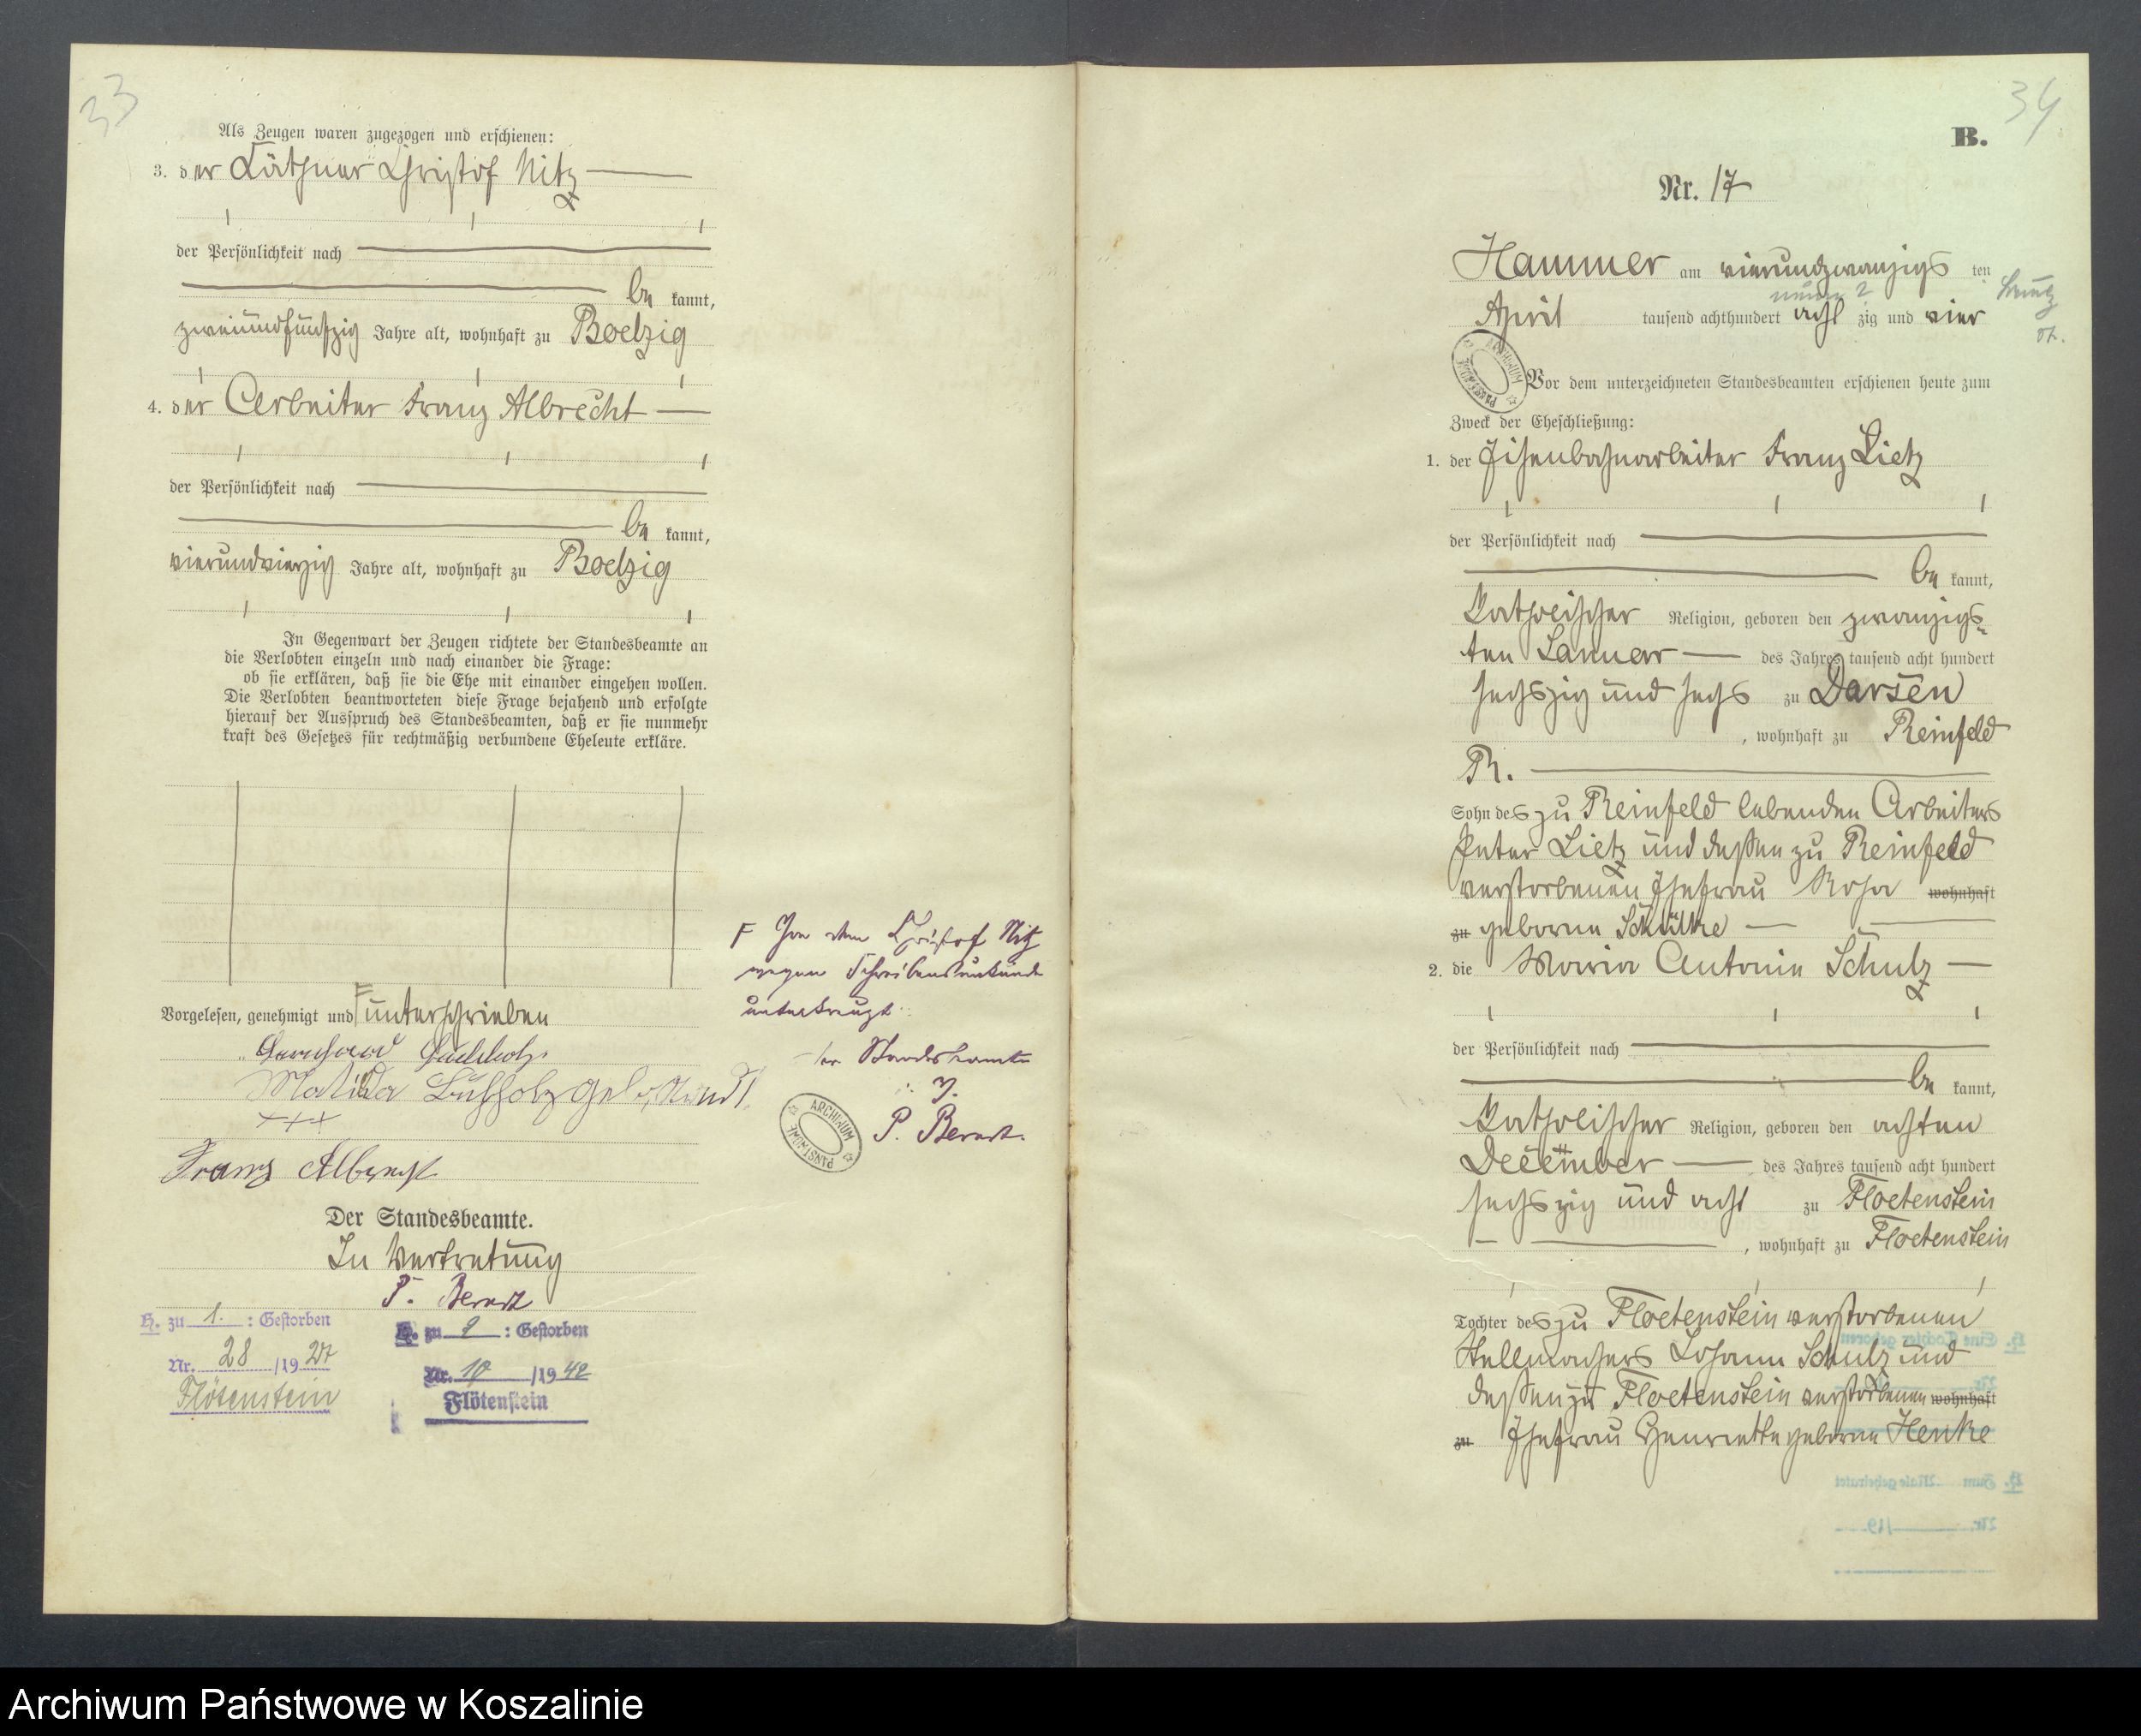 33
Als Zeugen waren zugezogen und erschienen:
3. der Käthner Christof Nitz
der Persönlichkeit nach
be kannt,
zweiundfünfzig Jahre alt, wohnhaft zu Boelzig
4. der Arbeiter Franz Albrecht
der Persönlichkeit nach
be kannt,
vierundvierzig Jahre alt, wohnhaft zu Boelzig
In Gegenwart der Zeugen richtete der Standesbeamte an
die Verlobten einzeln und nach einander die Frage:
ob sie erklären, daß sie die Ehe mit einander eingehen wollen.
Die Verlobten beantworteten diese Frage bejahend und erfolgte
hierauf der Ausspruch des Standesbeamten, daß er sie nunmehr
kraft des Gesetzes für rechtmäßig verbundene Eheleute erkläre.
Vorgelesen, genehmigt und unterschrieben
Buchholz
Matilda Buchholz geb.
+++
Franz Albrecht
Der Standesbeamte.
In Vertretung
P. Berndt
H. zu 1. : Gestorben
Nr. 28 /19 27
Flötenstein
H. zu 2 : Gestorben
Nr. 10 /19 42
Flötenstein
F Von dem Christof Nitz
wegen Schreibensunkunde
unterkreuzt
der Standesbeamte
J. V.
P. Berndt.
ARCHIWUM PAŃSTWOWE
34
B.
Nr. 17
Hammer am vierundzwanzigs ten
April tausend achthundert acht zig und vier
neun
ARCHIWUM PAŃSTWOWE
Vor dem unterzeichneten Standesbeamten erschienen heute zum
Zweck der Eheschließung:
1. der Eisenbahnarbeiter Franz Lietz
der Persönlichkeit nach
be kannt,
katholischer Religion, geboren den zwanzigs-
ten Januar des Jahres tausend acht hundert
sechszig und sechs zu Darsen
, wohnhaft zu Reinfeld
R.
Sohn des zu Reinfeld lebenden Arbeiters
Peter Lietz und dessen zu Reinfeld
verstorbenen Ehefrau Rosa wohnhaft
zu geborene Schülke
2. die Maria Antonie Schulz
der Persönlichkeit nach
be kannt,
katholischer Religion, geboren den achten
December des Jahres tausend acht hundert
sechszig und acht zu Floetenstein
, wohnhaft zu Floetenstein
Tochter des zu Floetenstein verstorbenen
Stellmachers Johann Schulz und
dessen zu Floetenstein verstorbenen wohnhaft
zu Ehefrau Henriette geborene Henke
Archiwum Państwowe w Koszalinie